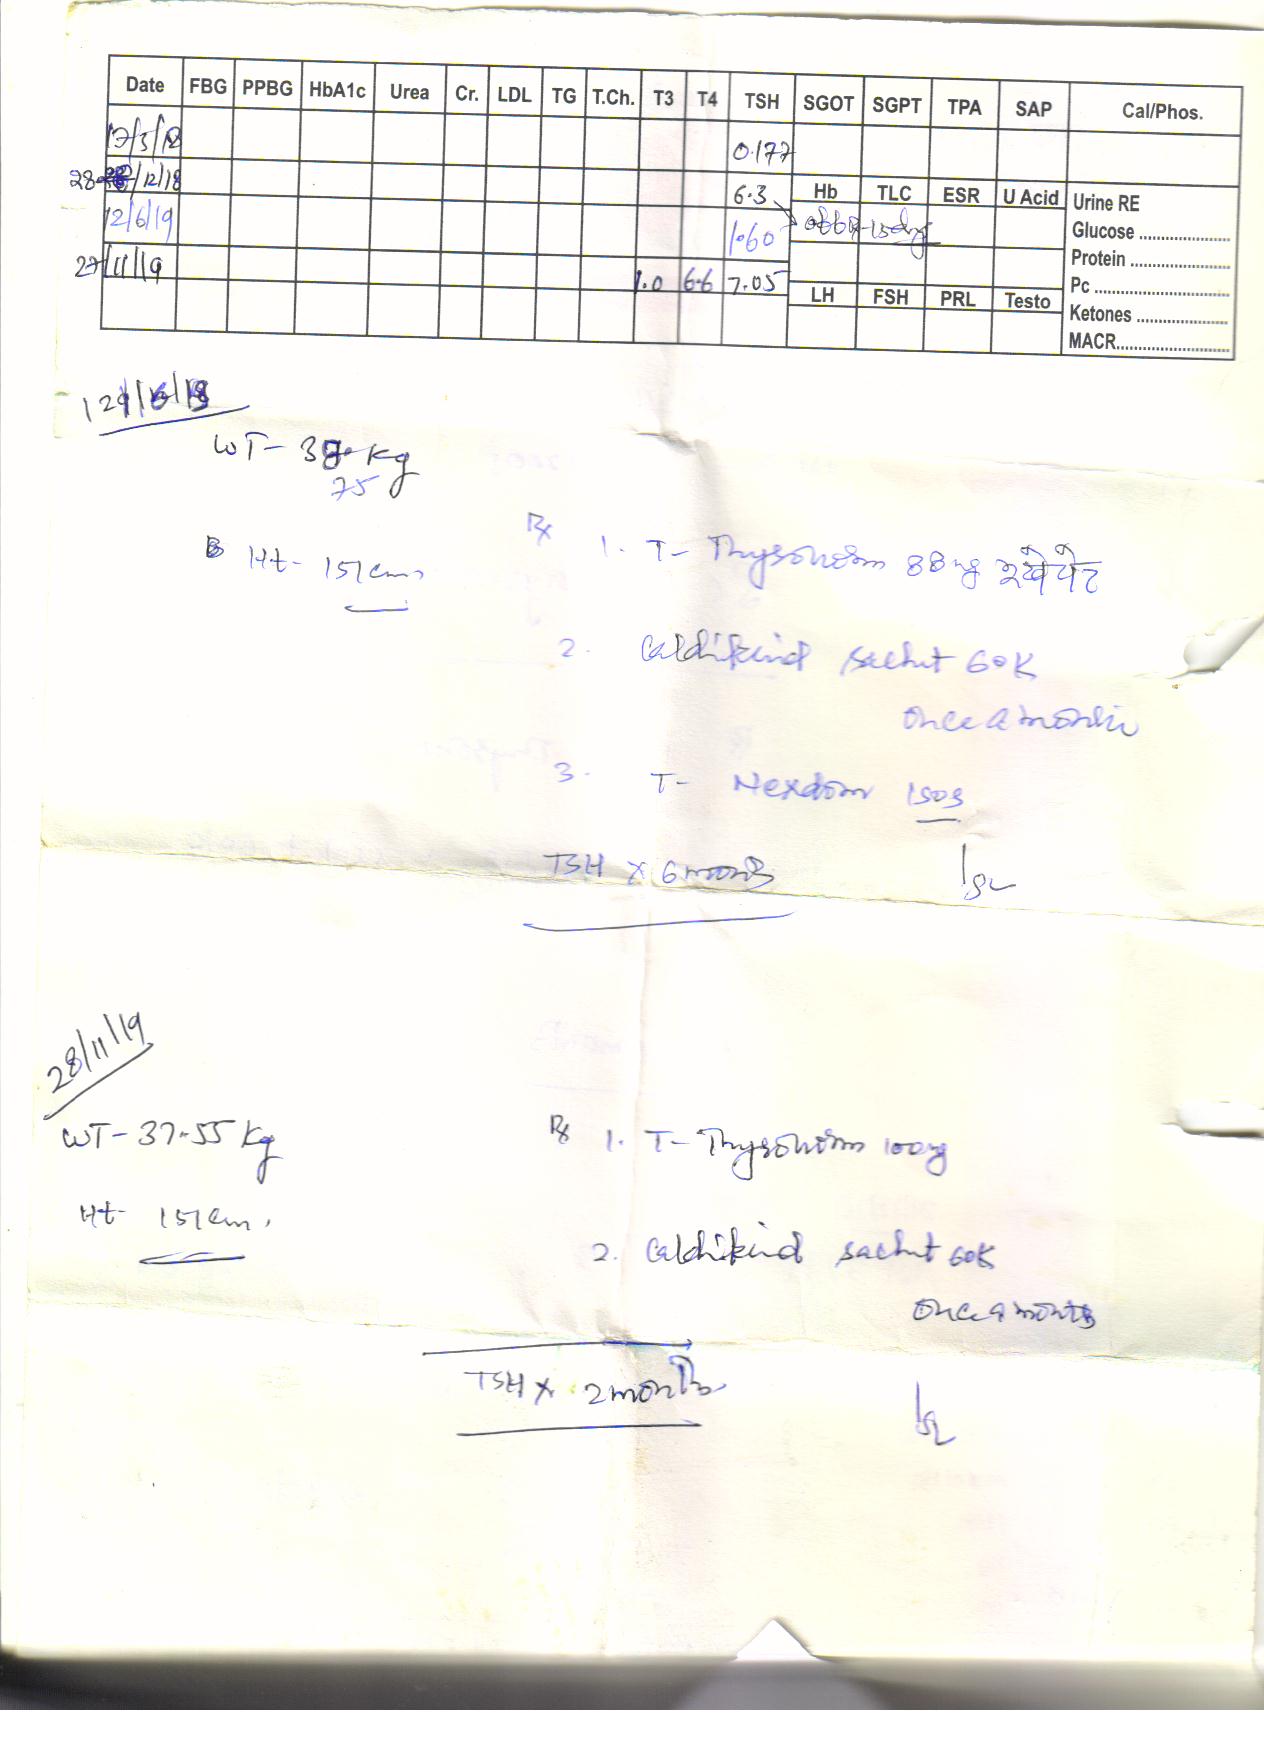 Date FBG PPBG HbA1c Urea Cr. LDL TG T.Ch. T3 T4 TSH SGOT SGPT TPA SAP Cal/Phos.
17/3/18 0.177
28 /12/18 6.3 Hb TLC ESR U Acid Urine RE
12/6/19 1.60 Glucose
Protein
27/11/19 1.0 6.6 7.05
LH FSH PRL Testo Pc
Ketones
MACR
WT- kg
75
Ht- 151cm
Rx 1. T- Thyronorm 88mg खाली पेट
2. Caldikind sachet 60K
once a month
3. T- Nexdom
TSH x 6 months
28/11/19
WT- 37.55 kg
Ht- 151cm.
Rx 1. T- Thyronorm 100mg
2. Caldikind sachet 60K
once a month
TSH x 2 months